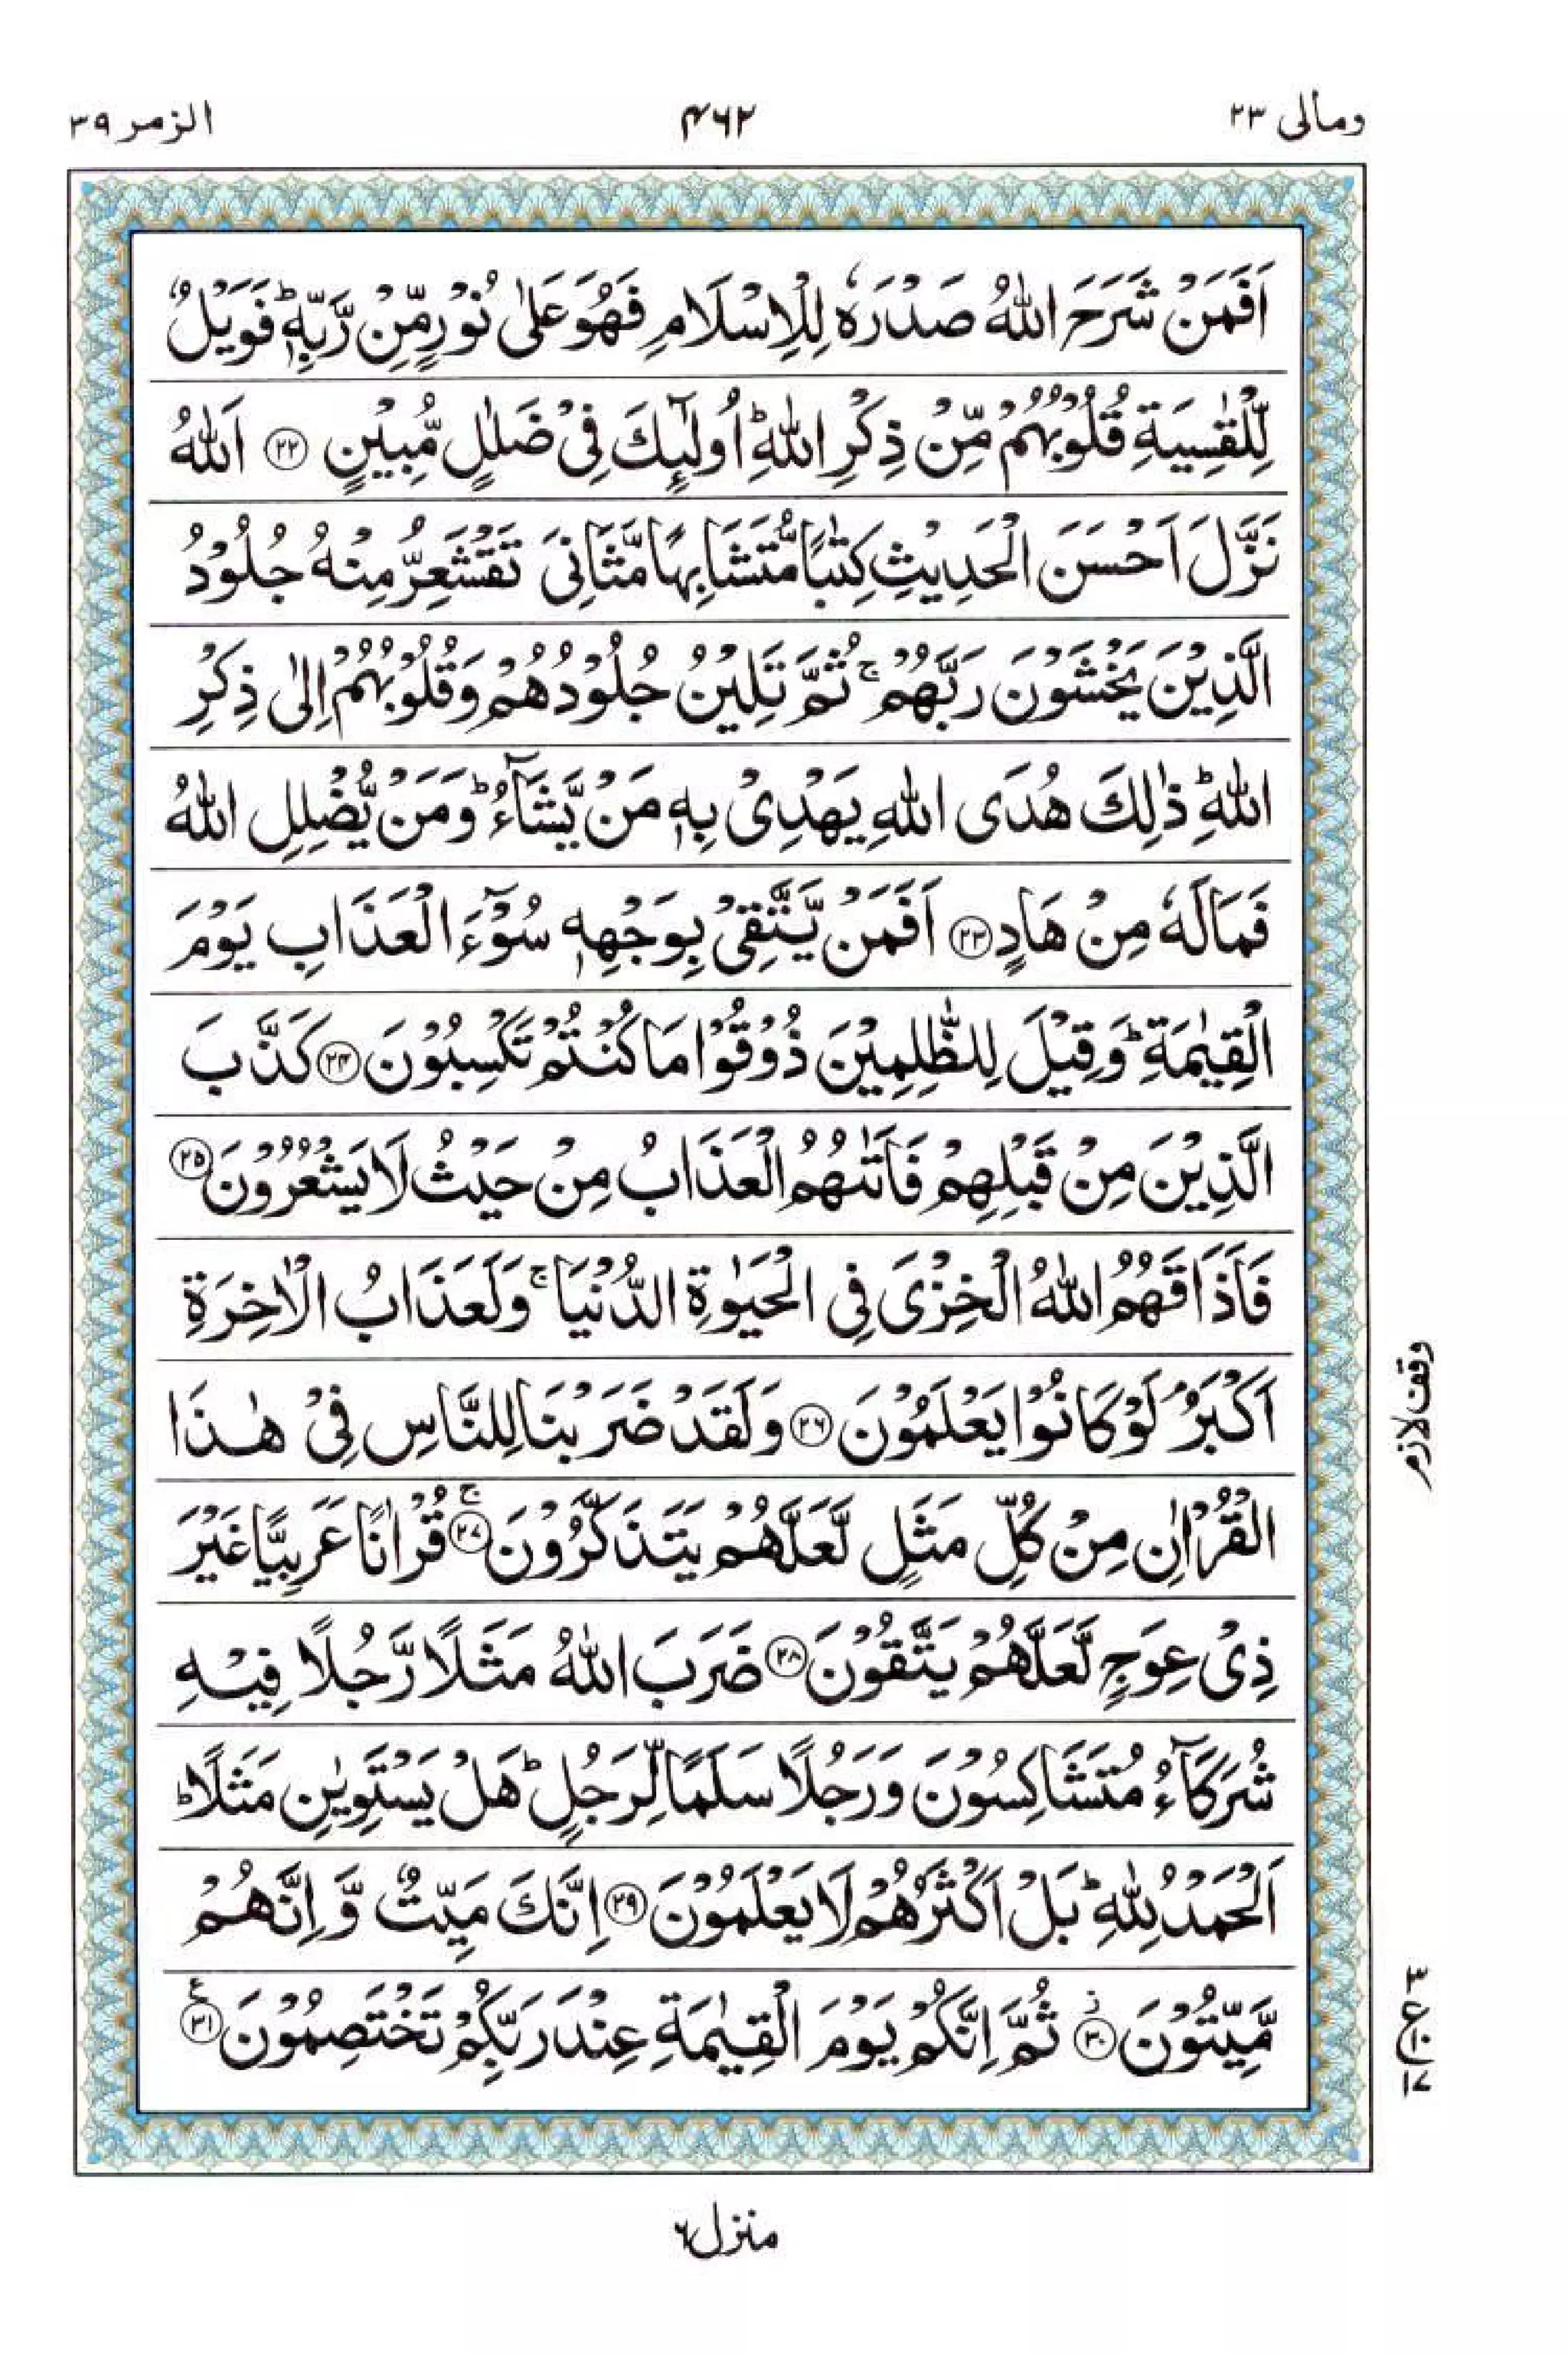 ومالی ٢٣ ۴۶۲ الزمر ٣٩
اَفَمَنْ شَرَحَ اللّٰهُ صَدْرَهٗ لِلْاِسْلَامِ فَهُوَ عَلٰى نُوْرٍ مِّنْ رَّبِّهٖ ؕ فَوَيْلٌ
لِّلْقٰسِيَةِ قُلُوْبُهُمْ مِّنْ ذِكْرِ اللّٰهِ ؕ اُولٰٓئِكَ فِيْ ضَلٰلٍ مُّبِيْنٍ ﴿٢٢﴾ اَللّٰهُ
نَزَّلَ اَحْسَنَ الْحَدِيْثِ كِتٰبًا مُّتَشَابِهًا مَّثَانِيَ تَقْشَعِرُّ مِنْهُ جُلُوْدُ
الَّذِيْنَ يَخْشَوْنَ رَبَّهُمْ ۚ ثُمَّ تَلِيْنُ جُلُوْدُهُمْ وَقُلُوْبُهُمْ اِلٰى ذِكْرِ
اللّٰهِ ؕ ذٰلِكَ هُدَى اللّٰهِ يَهْدِيْ بِهٖ مَنْ يَّشَآءُ ؕ وَمَنْ يُّضْلِلِ اللّٰهُ
فَمَا لَهٗ مِنْ هَادٍ ﴿٢٣﴾ اَفَمَنْ يَّتَّقِيْ بِوَجْهِهٖ سُوْٓءَ الْعَذَابِ يَوْمَ
الْقِيٰمَةِ ؕ وَقِيْلَ لِلظّٰلِمِيْنَ ذُوْقُوْا مَا كُنْتُمْ تَكْسِبُوْنَ ﴿٢٤﴾ كَذَّبَ
الَّذِيْنَ مِنْ قَبْلِهِمْ فَاَتٰىهُمُ الْعَذَابُ مِنْ حَيْثُ لَا يَشْعُرُوْنَ ﴿٢٥﴾
فَاَذَاقَهُمُ اللّٰهُ الْخِزْيَ فِي الْحَيٰوةِ الدُّنْيَا ۚ وَلَعَذَابُ الْاٰخِرَةِ
اَكْبَرُ ۘ لَوْ كَانُوْا يَعْلَمُوْنَ ﴿٢٦﴾ وَلَقَدْ ضَرَبْنَا لِلنَّاسِ فِيْ هٰذَا
الْقُرْاٰنِ مِنْ كُلِّ مَثَلٍ لَّعَلَّهُمْ يَتَذَكَّرُوْنَ ﴿٢٧﴾ ۚ قُرْاٰنًا عَرَبِيًّا غَيْرَ
ذِيْ عِوَجٍ لَّعَلَّهُمْ يَتَّقُوْنَ ﴿٢٨﴾ ضَرَبَ اللّٰهُ مَثَلًا رَّجُلًا فِيْهِ
شُرَكَآءُ مُتَشٰكِسُوْنَ وَرَجُلًا سَلَمًا لِّرَجُلٍ ؕ هَلْ يَسْتَوِيٰنِ مَثَلًا ؕ
اَلْحَمْدُ لِلّٰهِ ؕ بَلْ اَكْثَرُهُمْ لَا يَعْلَمُوْنَ ﴿٢٩﴾ اِنَّكَ مَيِّتٌ وَّ اِنَّهُمْ
مَّيِّتُوْنَ ﴿٣٠﴾ ز ثُمَّ اِنَّكُمْ يَوْمَ الْقِيٰمَةِ عِنْدَ رَبِّكُمْ تَخْتَصِمُوْنَ ﴿٣١﴾ ع
وقف لازم
منزل ٦